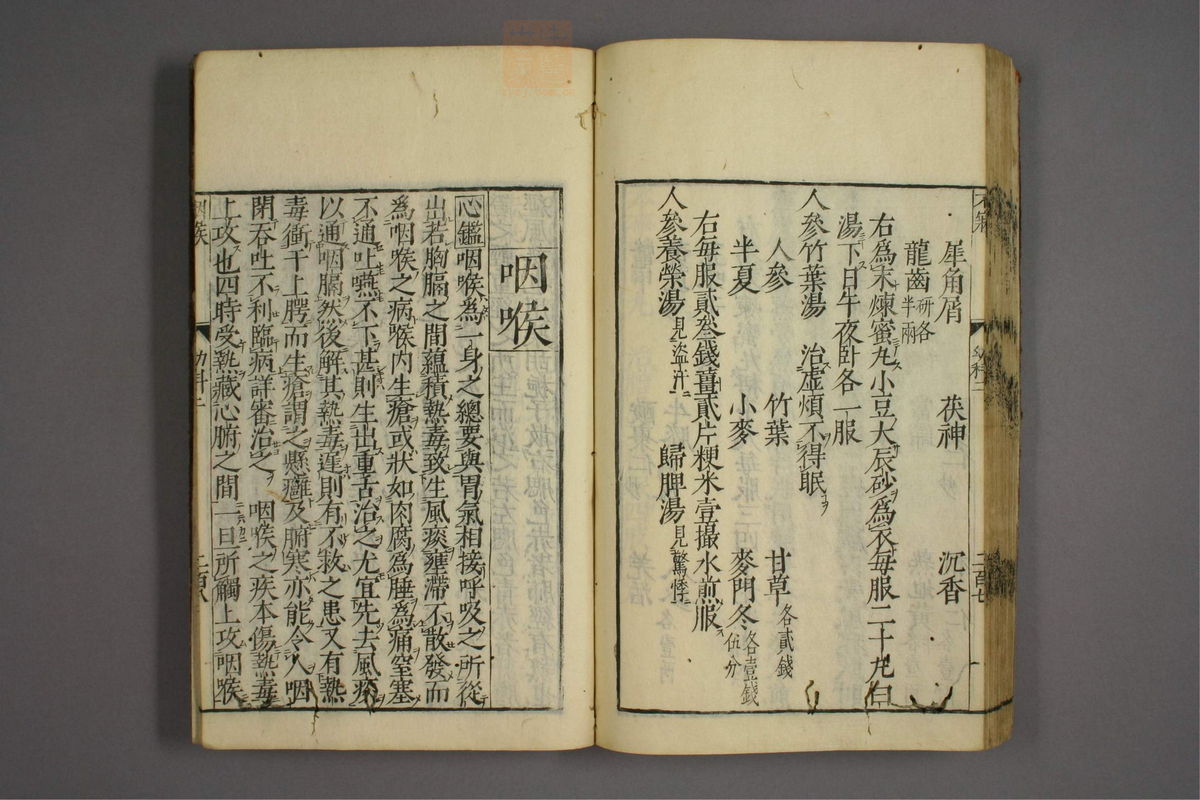 犀角屑 茯神 沉香
龍齒研各半兩
右為末煉蜜丸小豆大辰砂為衣毎服二十丸白
湯下日午夜臥各一服
人參竹葉湯 治虛煩不得眠
人參 竹葉 甘草各貳錢
半夏 小麥 麥門冬各壹錢伍分
右每服貳叁錢薑貳片粳米壹撮水煎服
人參養榮湯見盜汗 歸脾湯見驚悸
咽喉
心鑑咽喉為一身之總要與胃氣相接呼吸之所從
出若胸膈之間蘊積熱毒致生風痰壅滯不散發而
為咽喉之病喉内生瘡或狀如肉腐為腫為痛窒塞
不通吐嚥不下甚則生出重舌治之尤宜先去風痰
以通咽膈然後解其熱毒遲則有不救之患又有熱
毒衝于上腭而生瘡謂之懸癰及腑寒亦能令人咽
閉吞吐不利臨病詳審治之 咽喉之疾本傷熱毒
上攻也四時受熱藏心腑之間一曰所觸上攻咽喉
咽喉 幼科二 二百八